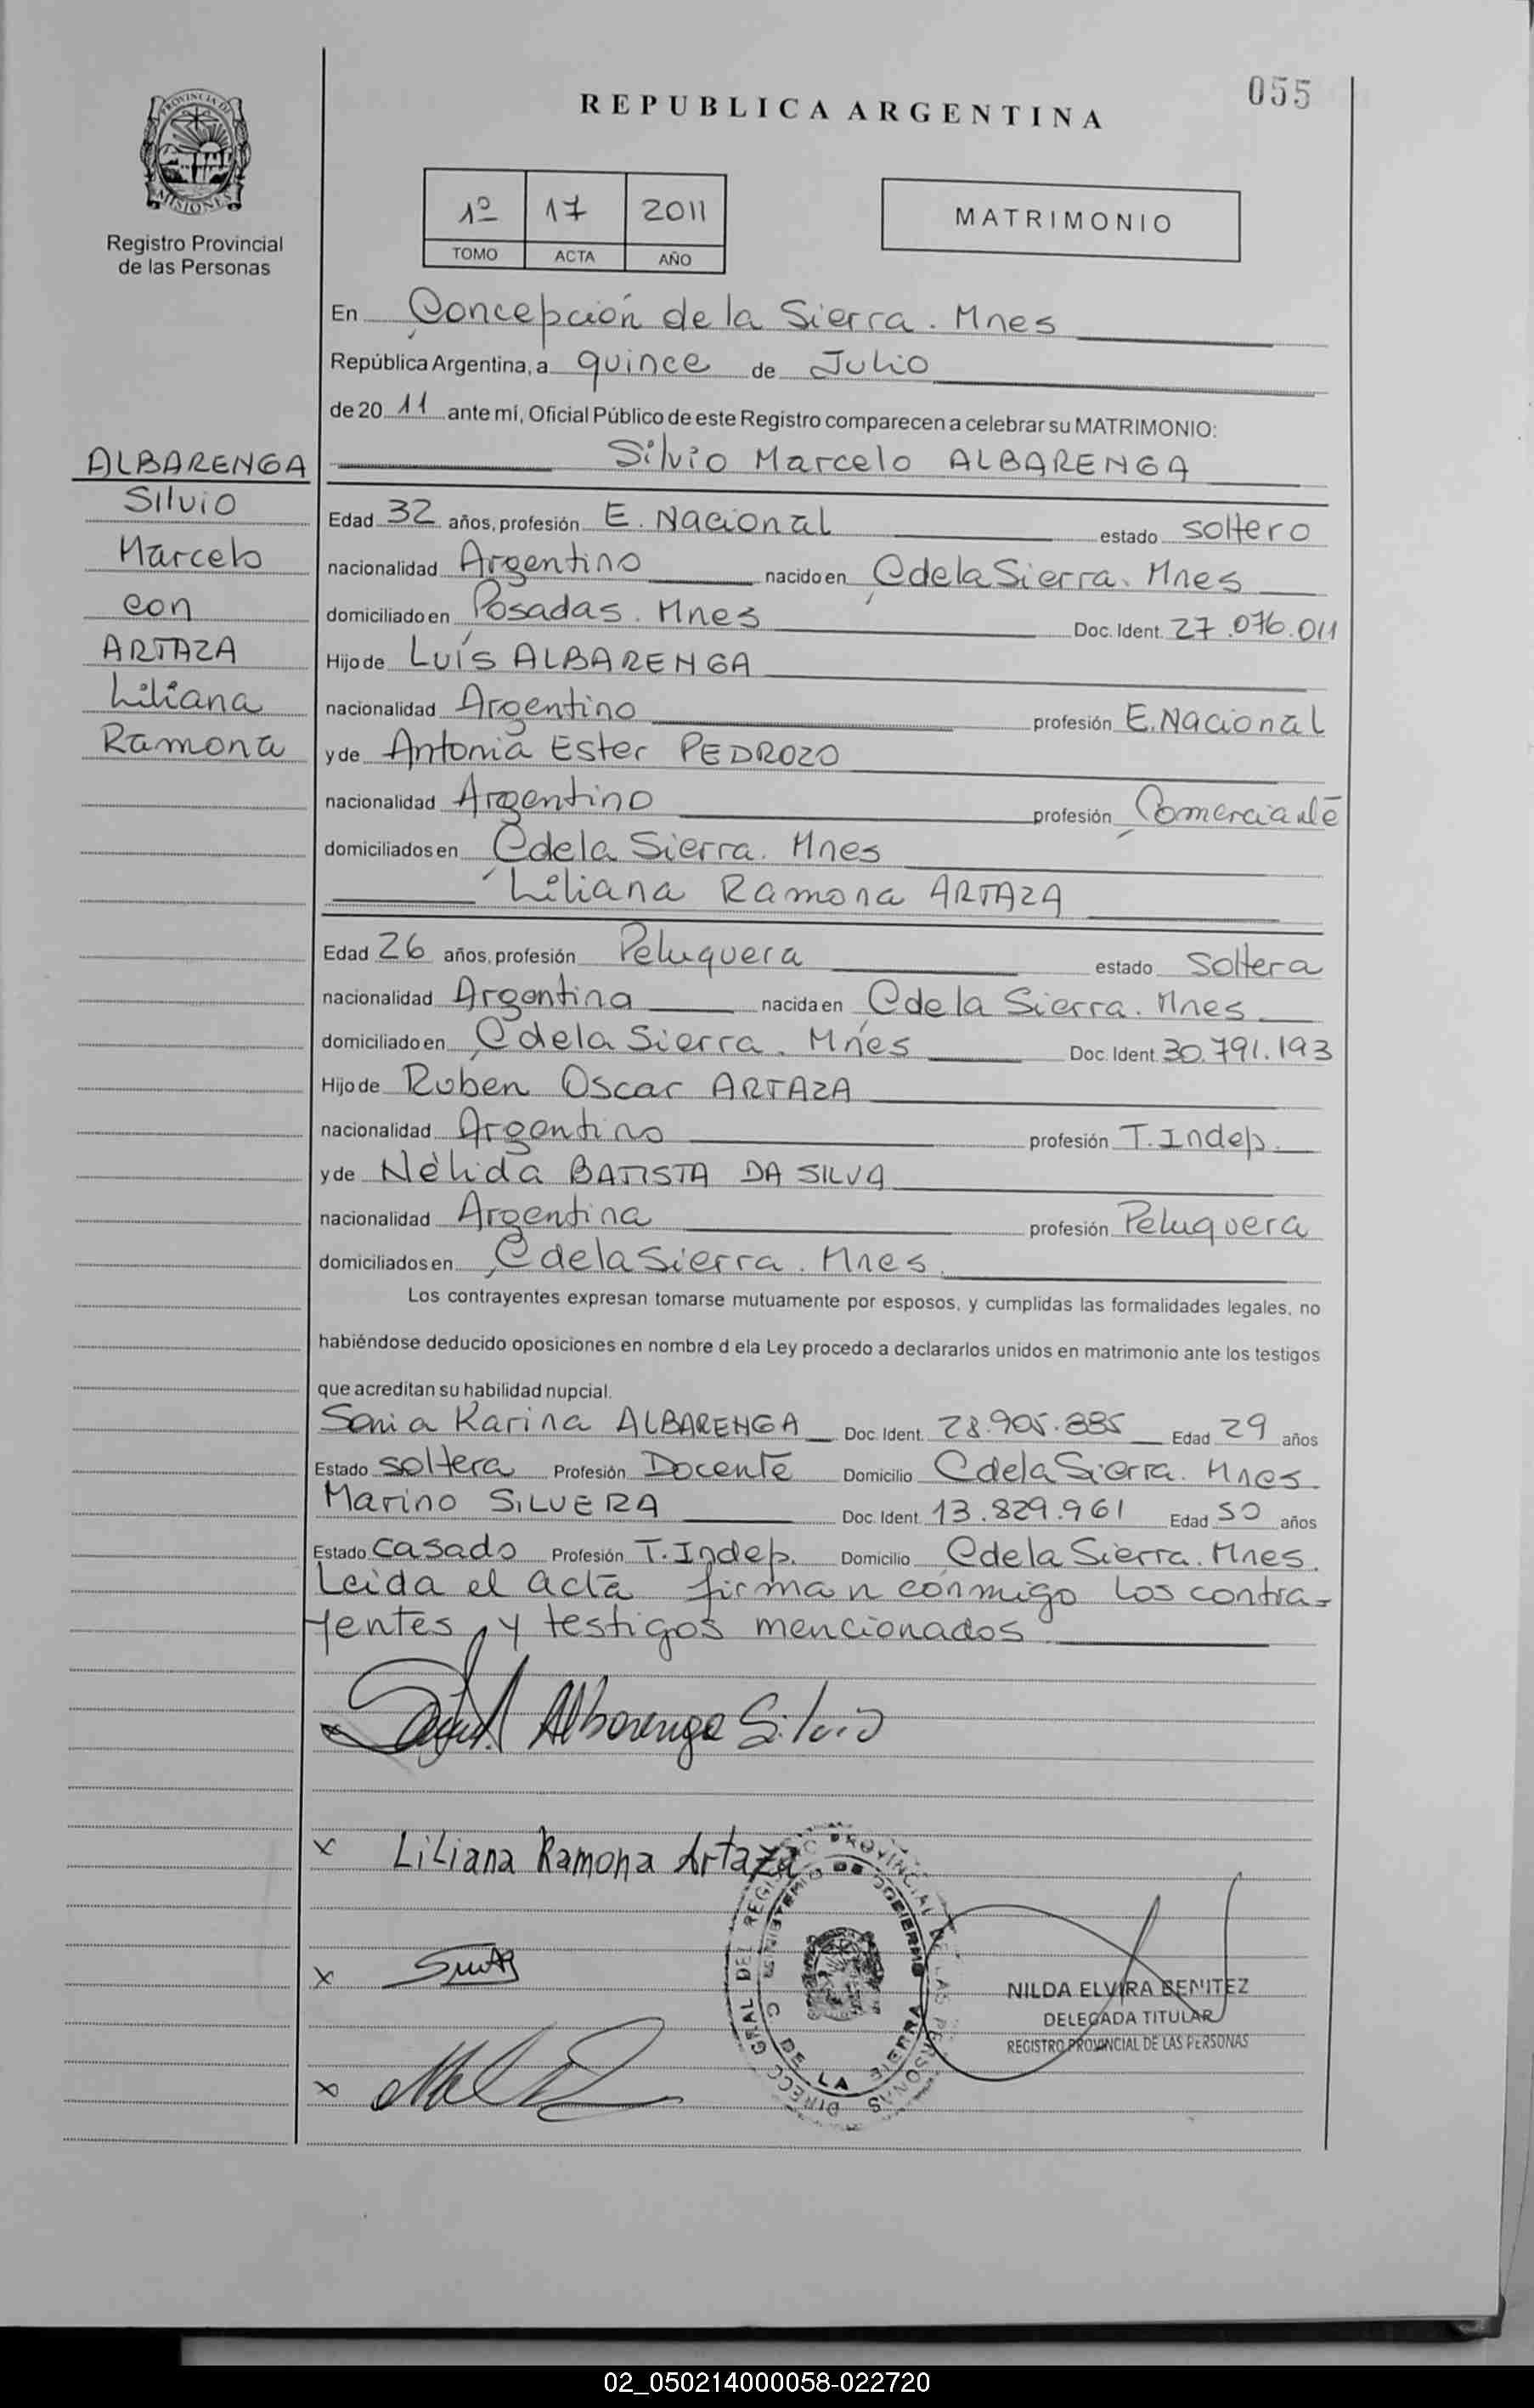 055
REPUBLICA ARGENTINA
PROVINCIA DE
MISIONES
Registro Provincial
de las Personas
1º 17 2011
TOMO ACTA AÑO
MATRIMONIO
En Concepción de la Sierra. Mnes
República Argentina, a quince de Julio
de 20 11 ante mí, Oficial Público de este Registro comparecen a celebrar su MATRIMONIO:
ALBARENGA
Silvio
Marcelo
con
ARTAZA
Liliana
Ramona
Silvio Marcelo ALBARENGA
Edad 32 años, profesión E. Nacional estado soltero
nacionalidad Argentino nacido en C de la Sierra. Mnes
domiciliado en Posadas. Mnes Doc. Ident. 27.076.011
Hijo de Luís ALBARENGA
nacionalidad Argentino profesión E. Nacional
y de Antonia Ester PEDROZO
nacionalidad Argentino profesión Comerciante
domiciliados en C de la Sierra. Mnes
Liliana Ramona ARTAZA
Edad 26 años, profesión Peluquera estado Soltera
nacionalidad Argentina nacida en C de la Sierra. Mnes
domiciliado en C de la Sierra. Mnes Doc. Ident. 30.791.193
Hijo de Ruben Oscar ARTAZA
nacionalidad Argentino profesión T. Indep.
y de Nèlida BATISTA DA SILVA
nacionalidad Argentina profesión Peluquera
domiciliados en C de la Sierra. Mnes
Los contrayentes expresan tomarse mutuamente por esposos, y cumplidas las formalidades legales, no
habiéndose deducido oposiciones en nombre d ela Ley procedo a declararlos unidos en matrimonio ante los testigos
que acreditan su habilidad nupcial.
Sonia Karina ALBARENGA Doc. Ident. 28.905.885 Edad 29 años
Estado soltera Profesión Docente Domicilio C de la Sierra. Mnes
Marino SILVERA Doc. Ident. 13.829.961 Edad 50 años
Estado casado Profesión T. Indep. Domicilio C de la Sierra. Mnes.
Leida el acta firman conmigo los contra-
yentes y testigos mencionados
Albarenga Silvio
x Liliana Ramona Artaza
x
x
DIRECC GRAL DEL REGISTRO PROVINCIAL DE LAS PERSONAS
MINISTERIO DE GOBIERNO
C. DE LA SIERRA
NILDA ELVIRA BENITEZ
DELEGADA TITULAR
REGISTRO PROVINCIAL DE LAS PERSONAS
02_050214000058-022720